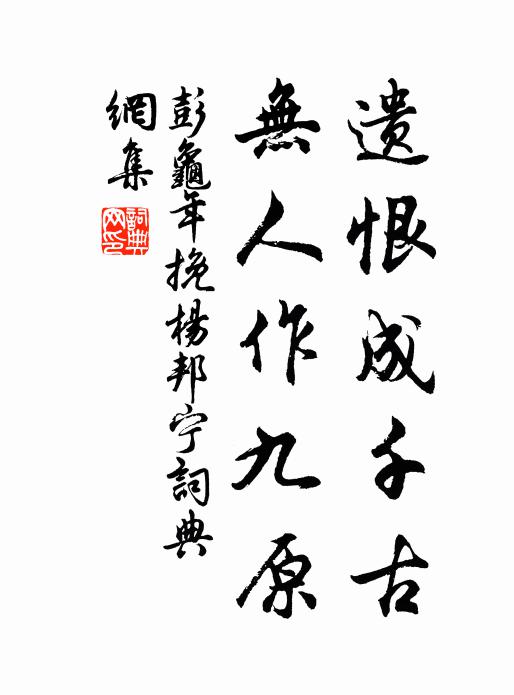 遗恨成千古
無人作九原
彭龜年挽楊邦宁詞典
網集
詞典
网印